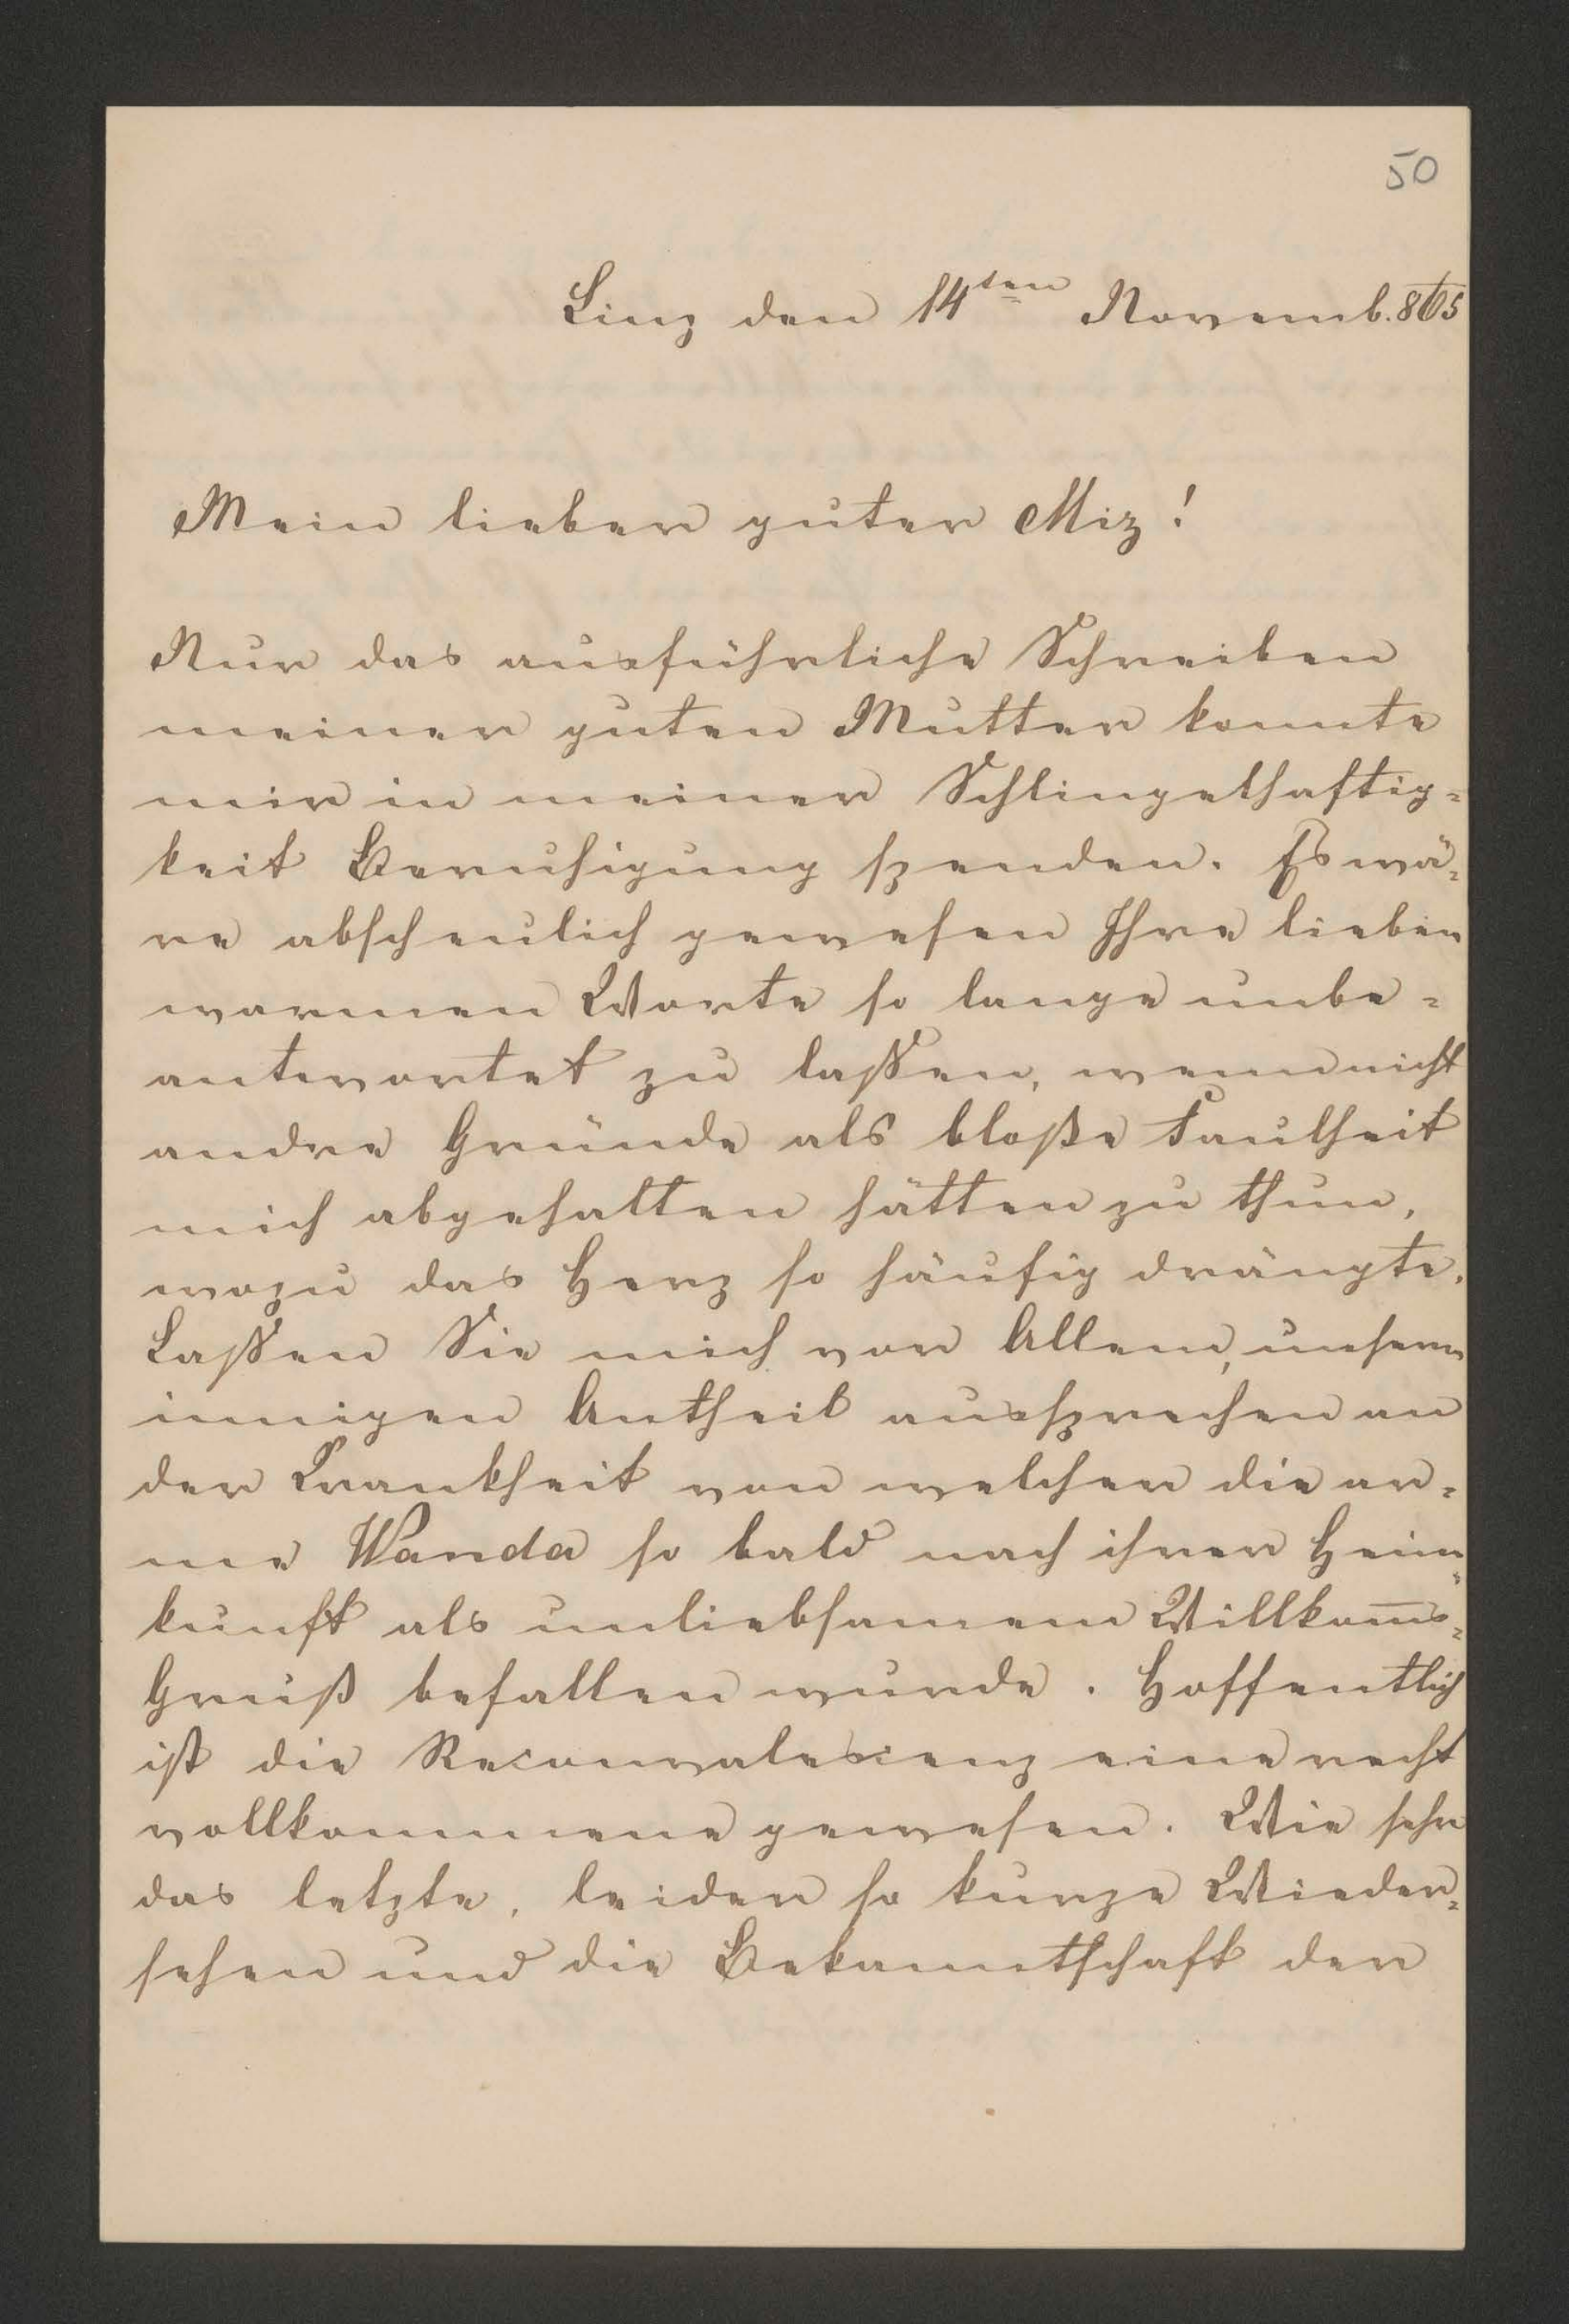 50
Linz den 14ten Novemb. 865
Mein lieber guter Miz!
Nur das ausführliche Schreiben
meiner guten Mutter konnte
mir in meiner Schlingelhaftig=
keit Beruhigung spenden. Es wä=
re abscheulich gewesen Ihre lieben
warmen Worte so lange unbe=
antwortet zu laßen, wenn nicht
andre Gründe als bloße Faulheit
mich abgehalten hätten zu thun,
wozu das Herz so häufig drängte.
Laßen Sie mich vor Allem, unsern
innigen Antheil aussprechen an
der Krankheit von welcher die ar=
me Wanda so bald nach ihrer Heim=
kunft als unliebsamem Willkom̅s=
Gruß befallen wurde. Hoffentlich
ist die Reconvalescenz eine recht
vollkommene gewesen. Wie sehr
das letzte, leider so kurze Wieder=
sehen und die Bekanntschaft der